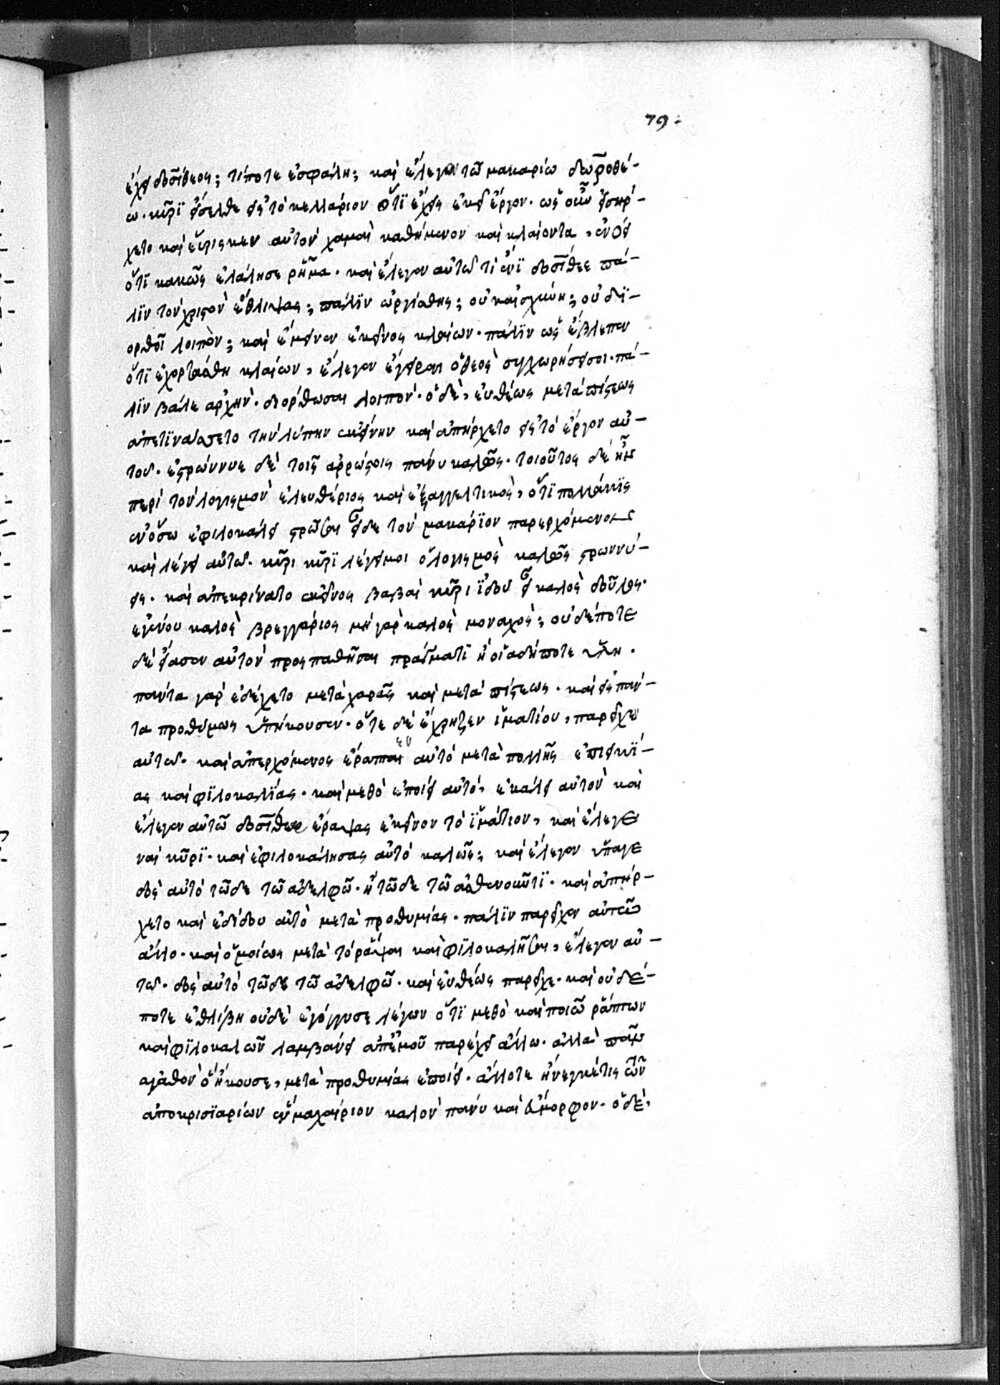 79
ἔχει δοσίθεος; τίποτε ἐσφάλη; καὶ ἔλεγε τῶ μακαρίω δωροθέ-
ω. κῦρϊ εἴσελθε εἰς τὸ κελλάριον ὅτϊ ἔχεις ἐκεῖ ἔργον. ὡς οὖν εἰσήρ-
χετο καὶ εὕρισκεν αὐτὸν χαμαὶ καθήμενον καὶ κλαίοντα,
ὅτϊ κακῶς ἐλάλησε ρῆμα. καὶ ἔλεγον αὐτῶ τί ἐνϊ δοσίθεε πά-
λϊν τὸν χριστὸν ἔθλιψας; πάλϊν ὠργίσθης; οὐκ αἰσχύνη; οὐ δϊ-
ορθοῖ λοιπὸν; καὶ ἔμεινεν ἐκεῖνος κλαίων. πάλϊν ὡς ἔβλεπον
ὅτϊ ἐχορτάσθη κλαίων, ἔλεγον ἔγειραι ὁ θεὸς συγχωρήσει σοι. πά-
λϊν βάλε ἀρχήν. διόρθωσαι λοιπόν. ὁ δὲ, εὐθέως μετὰ πίστεως
ἀπετϊνάσσετο τὴν λύπην ἐκείνην καὶ ἀπήρχετο εἰς τὸ ἔργον αὐ-
τοῦ. ἐστρώννυε δὲ τοῖς ἀρρώστοις πάνυ καλῶς. τοιοῦτος δὲ ἦν
περὶ τὸν λογισμὸν ἐλευθέριος καὶ ἐξαγγελτικὸς, ὅτϊ πολλάκϊς
ἐν ὅσω ἐφιλοκάλει στρῶσαι εἶδε τὸν μακάρϊον παρερχόμενον
καὶ λέγει αὐτῶ. κῦρι κῦρϊ λέγει μοι ὁ λογισμὸς καλῶς στρωννύ-
εις. καὶ ἀπεκρίνατο ἐκεῖνος βαβαὶ κῦρι ϊδοὺ εἶ καλὸς δοῦλος.
ἐγένου καλὸς βρεγγάριος μὴ γὰρ καλὸς μοναχὸς; οὐδέποτε
δὲ εἴασεν αὐτὸν προσπαθῆσαι πράγματϊ ἢ οἱαδήποτε ὕλη.
πάντα γὰρ ἐδέχετο μετὰ χαρᾶς καὶ μετὰ πίστεως. καὶ εἰς πάν-
τα προθύμως ὑπήκουσεν. ὅτε δὲ ἔχρηζεν ἱματίου, παρεῖχεν
αὐτῶ. καὶ ἀπερχόμενος ἔραπτεν αὐτὸ μετὰ πολλῆς ἐπιεικεί-
ας καὶ φϊλοκαλϊας. καὶ μεθὸ ἐποίει αὐτὸ, ἐκάλει αὐτὸν καὶ
ἔλεγον αὐτῶ δοσίθεε ἔραψας ἐκεῖνον τὸ ϊμάτιον, καὶ ἔλεγε
ναὶ κῦρϊ. καὶ ἐφιλοκάλησας αὐτὸ καλῶς; καὶ ἔλεγον ὕπαγε
δὸς αὐτὸ τῶδε τῶ ἀδελφῶ. ἢ τῶδε τῶ ἀσθενοῦντϊ. καὶ ἀπήρ-
χετο καὶ ἐδίδου αὐτὸ μετὰ προθυμίας. πάλϊν παρεῖχον αὐτῶ
ἄλλο. καὶ ὁμοίως μετὰ τὸ ράψαι καὶ φϊλοκαλῆσαι, ἔλεγον αὐ-
τῶ. δὸς αὐτὸ τῶδε τῶ ἀδελφῶ. καὶ εὐθέως παρεῖχε. καὶ οὐδέ-
ποτε ἐθλίβη οὐδὲ ἐγόγγυσε λέγων ὅτϊ μεθὸ καὶ ποιῶ ράπτων
καὶ φϊλοκαλῶν λαμβάνει ἀπ' ἐμοῦ παρέχει ἄλλω. ἀλλὰ πᾶν
ἀγαθὸν ὃ ἤκουσε, μετὰ προθυμίας ἐποίει. ἄλλοτε ἤνεγκέ τις τῶν
ἀποκρισϊαρίων ἓν μαχαίριον καλὸν πάνυ καὶ εὔμορφον. ὁ δὲ,